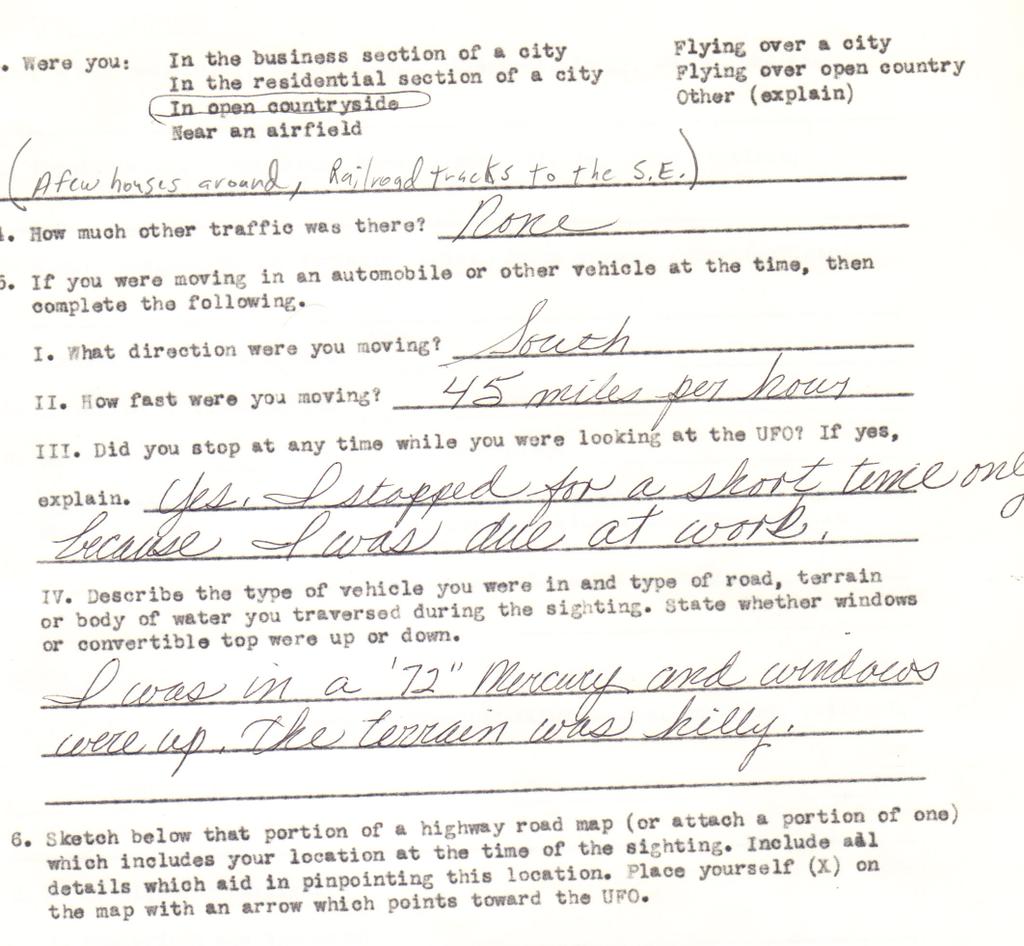 . Were you: In the business section of a city Flying over a city
In the residential section of a city Flying over open country
In open countryside Other (explain)
Near an airfield
(A few houses around, Railroad tracks to the S.E.)
. How much other traffic was there? None
5. If you were moving in an automobile or other vehicle at the time, then
complete the following.
I. What direction were you moving? South
II. How fast were you moving? 45 miles per hour
III. Did you stop at any time while you were looking at the UFO? If yes,
explain. Yes. I stopped for a short time only
because I was due at work.
IV. Describe the type of vehicle you were in and type of road, terrain
or body of water you traversed during the sighting. State whether windows
or convertible top were up or down.
I was in a '72" Mercury and windows
were up. The terrain was hilly.
6. Sketch below that portion of a highway road map (or attach a portion of one)
which includes your location at the time of the sighting. Include all
details which aid in pinpointing this location. Place yourself (X) on
the map with an arrow which points toward the UFO.